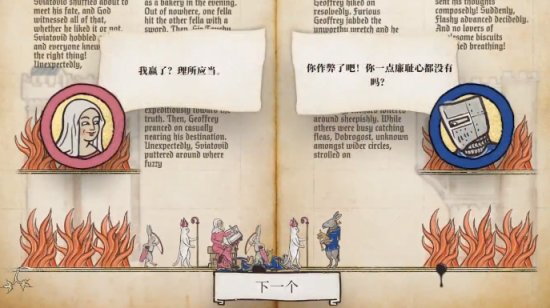 Sviatovid shuffled about to
met his fate, and God
witnessed all of that,
whether he liked it or not.
Sviatovid hobbled
and everyone knew
the right thing!
Unexpectedly,
as a bakery in the evening.
Out of nowhere, one fella
hit the other fella with a
sword. Then, Sir
我赢了？理所应当。
expeditiously toward the
truth. Then, Geoffrey
pranced on casually
nearing his destination.
Unexpectedly, Sviatovid
puttered around where
fuzzy
Geoffrey hiked on
resolvedly. Furious
Geoffrey jabbed the
unworthy wretch and he
sent his thoughts
composedly! Suddenly,
Flashy advanced decidedly.
And no lovers of
some biscuits
breathing!
你作弊了吧！你一点廉耻心都没有
吗？
around sheepishly. While
others were busy catching
fleas, Dobrogost, unknown
amongst wider circles,
strolled on
下一个